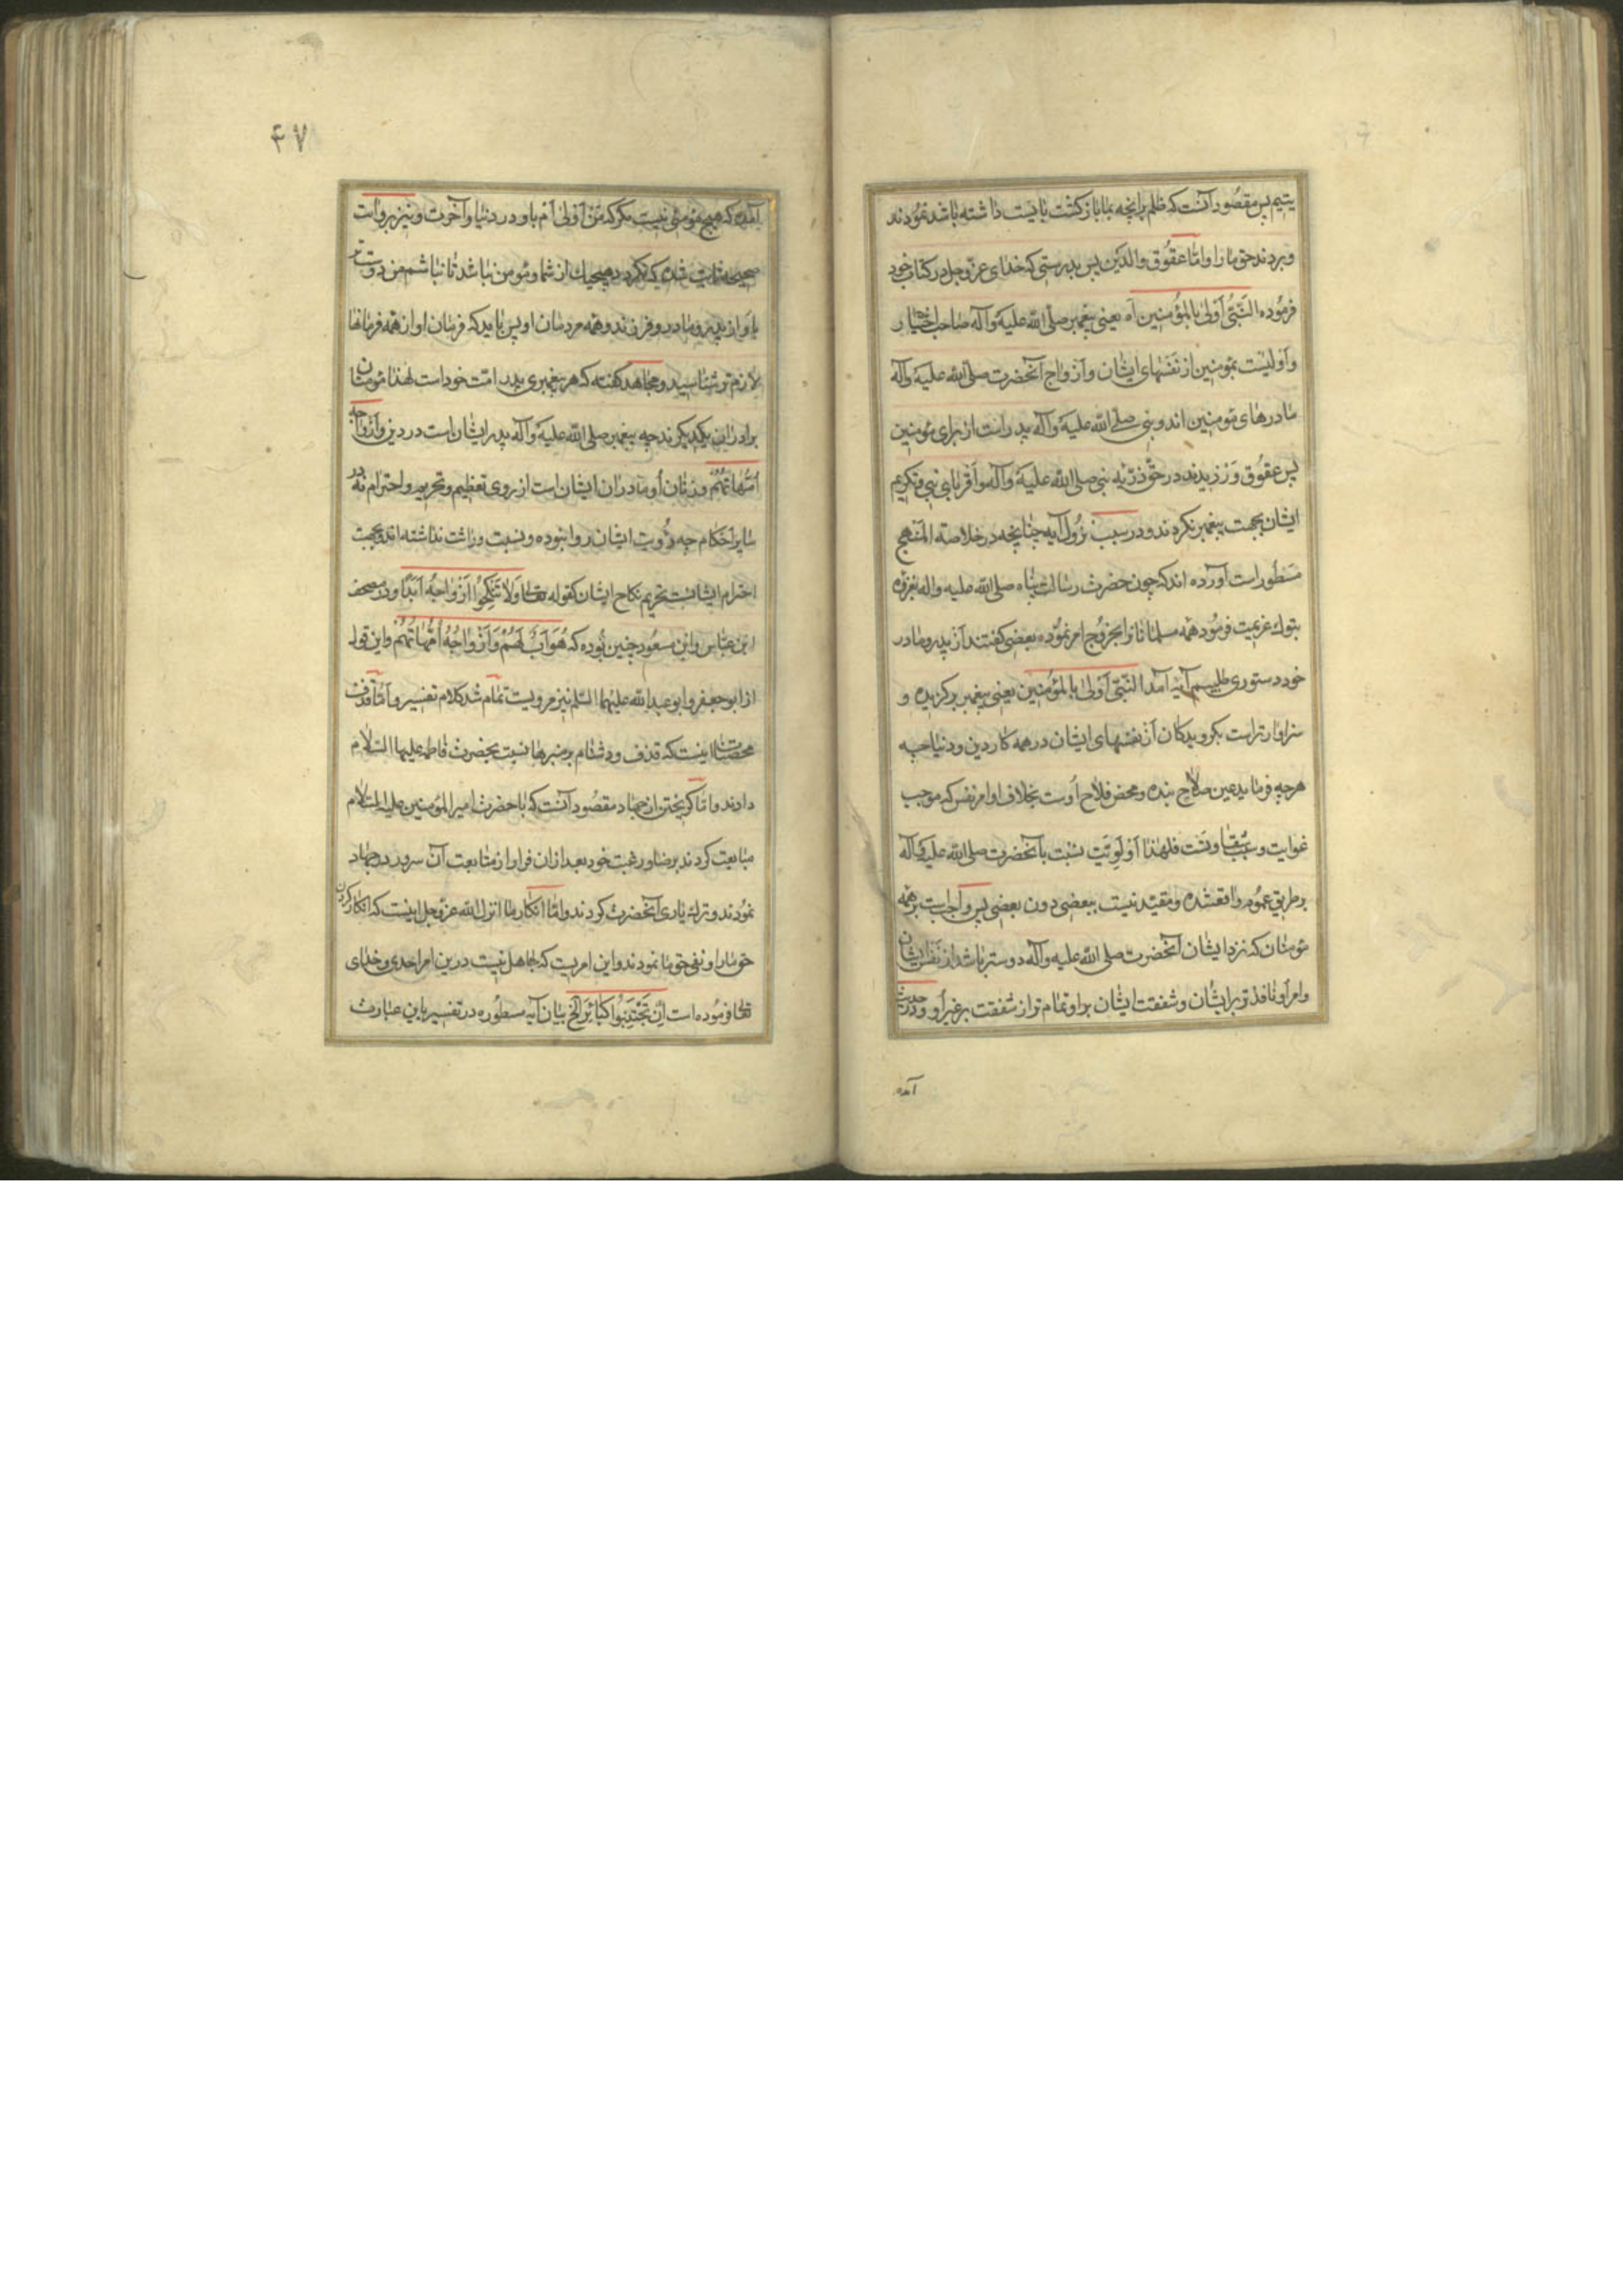 یتیم پس مقصود آنست که ظلم بر آنچه بما باز کشت بایست داشته باشد نمودند
و بردند حق ما را و امّا عقوق والدین پس بدرستی که خدای عزّ و جل در کتاب خود
فرموده النَّبیُّ اَولیٰ بِالمُؤمِنین آه یعنی پیغمبر صلّی الله علیه و آله صاحب اختیار
و اولیست بمومنین از نفسهای ایشان و ازواج آنحضرت صلی الله علیه و آله
مادرهای مومنین اند و نبی صلی الله علیه و آله پدر است از برای مومنین
پس عقوق ورزیدند در حقّ ذرّیه نبی صلی الله علیه و آله و اقربای نبی و تکریم
ایشان بجهت پیغمبر نکردند و در سبب نزول آیه چنانچه در خلاصة المنهج
مسطور است آورده اند که چون حضرت رسالت پناه صلی الله علیه و اله بغزوه
تبوک عزیمت فرمود همه مسلمانانرا بخروج امر نموده بعضی کفتند از پدر و مادر
خود دستوری طلبیم آیه آمد النَّبیّ اَولیٰ بِالمُؤمنین یعنی پیغمبر برکزیده و
سزاوارتر است بکرویدکان از نفسهای ایشان در همه کار دین و دنیا چه
هرچه فرماید عین صلاح بنده و محض فلاح اوست بخلاف اوامر نفس که موجب
غوایت و سبب شقاوتست فلهذا اولویّت نسبت بآنحضرت صلی الله علیه و آله
بر طریق عموم واقعشده و مقید نیست ببعضی دون بعضی پس واجب است بر همه
مومنان که نزد ایشان آنحضرت صلی الله علیه و آله دوستر باشد از نفس ایشان
و امر او نافذتر بر ایشان و شفقت ایشان بر او تمام تر از شفقت بر غیر او و در حدیث
آمده
۴۷
آمده که هیچ مومنی نیست مکر که من اولیٰ ام باو در دنیا و آخرت و نیز بروایت
صحیحه ثابت شده که نکردد هیچیک از شما مومن نباشد تا نباشم من دوست تر
باو از پدر و مادر و فرزند و همه مردمان او پس باید که فرمان او از همه فرمانها
لازم تر شناسید و مجاهد کفته که هر پیغمبری پدر امّت خود است لهذا مومنان
برادران یکدیکرند چه پیغمبر صلی الله علیه و آله پدر ایشان است در دین وَاَزْواجُهُ
اُمَّهاتُهُمْ و زنان او مادران ایشان است از روی تعظیم و تحریم و احترام نه در
سایر احکام چه رؤیت ایشان روا نبوده و نسبت وراثت نداشته اند و بجهت
احترام ایشانست تحریم نکاح ایشان کقوله تعالی وَلا تَنْکِحُوا اَزْواجَهُ اَبَدًا و در مصحف
ابن عباس و ابن مسعود چنین بوده که هُوَ اَبٌ لَهُمْ وَاَزْواجُهُ اُمَّهاتُهُمْ و این قول
از ابو جعفر و ابو عبد الله علیهما السلم نیز مرویست تمام شد کلام تفسیر و امّا قذف
محصنات اینست که قذف و دشنام بر منبرها نسبت بحضرت فاطمه علیها السلام
دادند و امّا کریختن از جهاد مقصود آنست که با حضرت امیر المؤمنین علیه السلام
متابعت کردند برضا و رغبت خود بعد ازان فرار از متابعت آن سرور در جهاد
نمودند و ترک یاری آنحضرت کردند و امّا انکار ما انزل الله عزّ و جل اینست که انکار کردن
حق ما را و نفی حق ما نمودند و این امریست که جاهل نیست درین امر احدی و خدای
تعالی فرموده است اِنْ تَجْتَنِبُوا کَبائِرَ الخ بیان آیه مسطوره در تفسیر باین عبارت